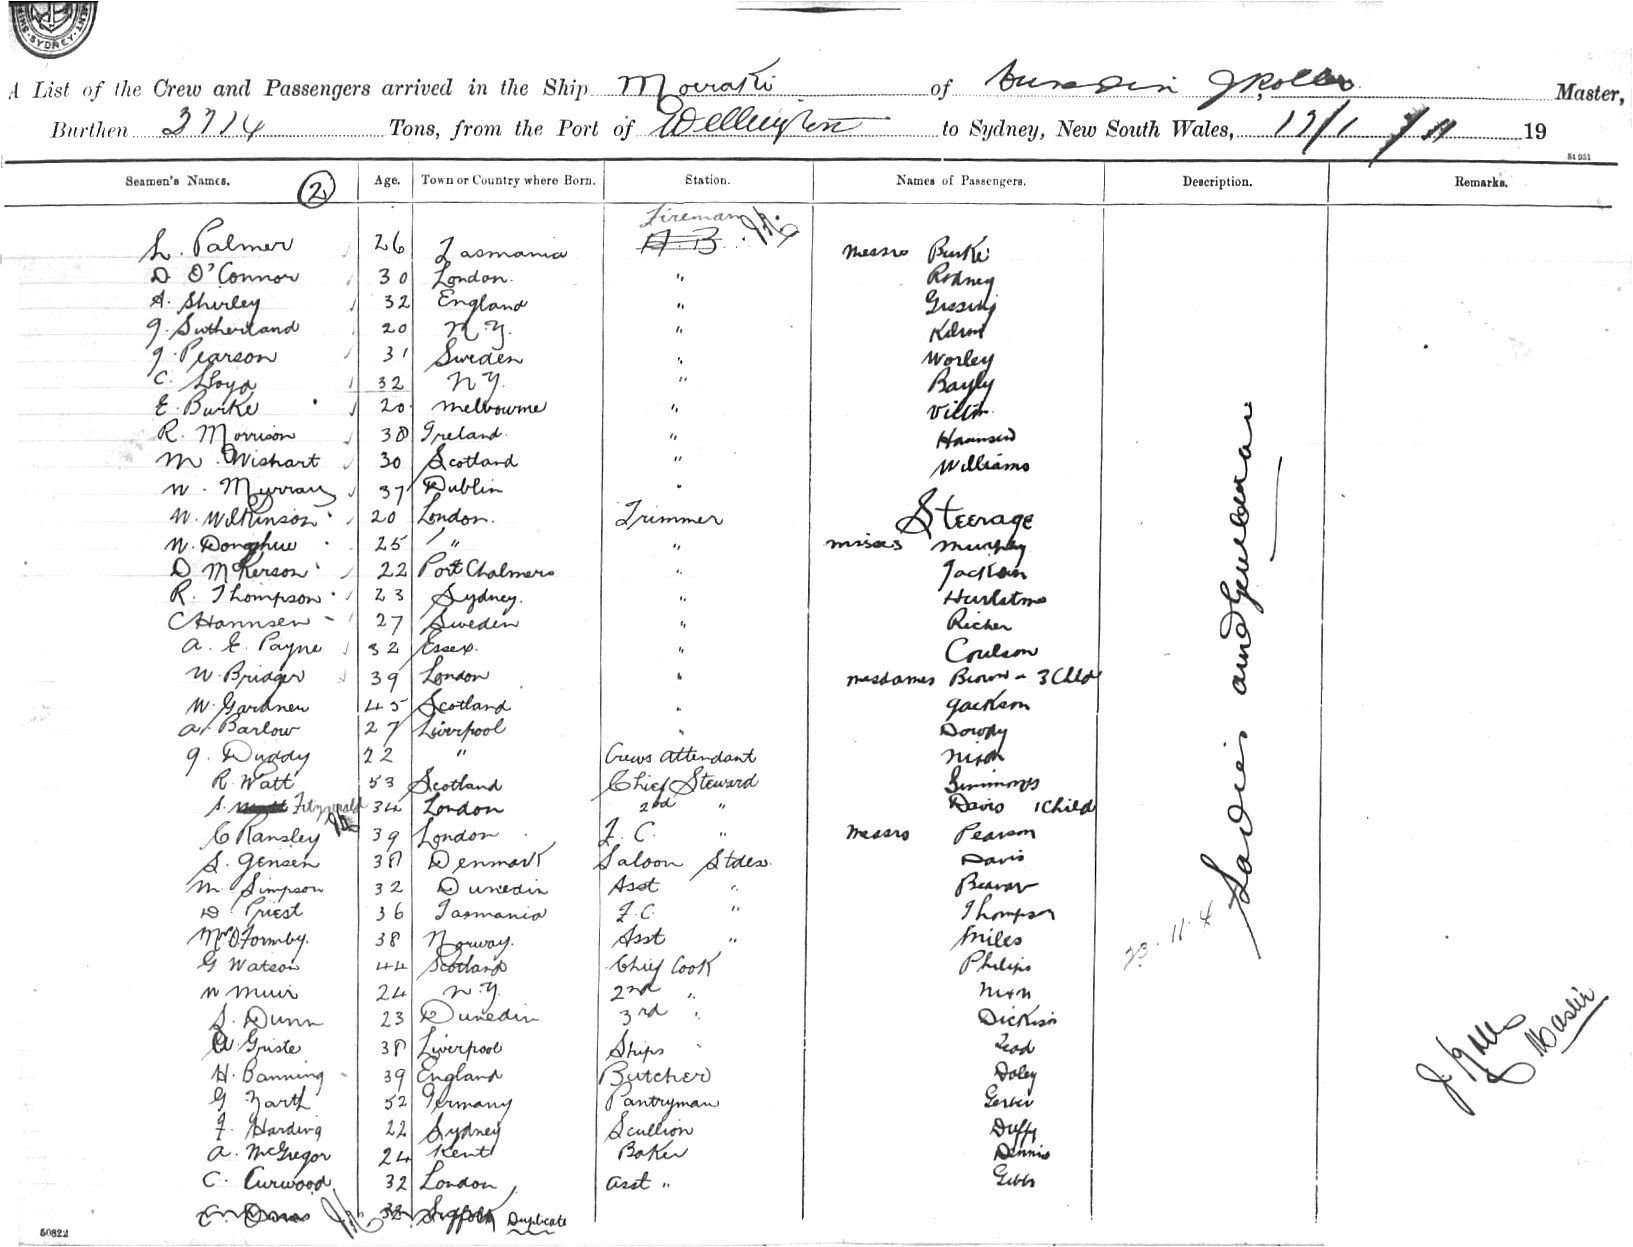 SYDNEY
A List of the Crew and Passengers arrived in the Ship Moeraki of Dunedin J Rolls Master,
Burthen 3714 Tons, from the Port of Wellington to Sydney, New South Wales, 19
St 951
Seamen's Names. (2) Age. Town or Country where Born. Station. Names of Passengers. Description. Remarks.
Fireman
L. Palmer 26 Tasmania A.B. Messrs Burke
D O'Connor 30 London. " Rodney
A. Shirley 32 England "
J. Sutherland 20 N.Z. "
J. Pearson 31 Sweden " Worley
C. Lloyd 32 N Z. " Bayly
E. Burke 20 Melbourne "
R. Morrison 38 Ireland "
M. Wishart 30 Scotland " Williams
W. Murray 37 Dublin "
W. Wilkinson 20 London. Trimmer Steerage
W. Donoghue 25 " " Misses Murphy
D McKerson 22 Port Chalmers " Jackson
R. Thompson 23 Sydney. "
C Hannsen 27 Sweden " Richer
A. E. Payne 32 Essex. " Coulson
W. Bridger 39 London " Mesdames Brown - 3 Chld
W. Gardner 45 Scotland " Jackson
A. Barlow 27 Liverpool "
J. Duddy 22 " Crews Attendant Nixon
R. Watt 53 Scotland Chief Steward Simmons
S. Fitzgerald 34 London 2nd " Davis 1 Child
C Ransley 39 London F. C. " Messrs Pearson
S. Jensen 38 Denmark Saloon Stdess. Davis
M Simpson 32 Dunedin Asst "
D Priest 36 Tasmania F.C. " Thompson
Formby. 38 Norway. Asst " Miles
G Watson 44 Scotland Chief Cook Philips
W Muir 24 N.Z. 2nd " Nixon
S. Dunn 23 Dunedin 3rd "
Griste 38 Liverpool Ships "
H. Banning 39 England Butcher Doley
G Zarth 52 Germany Pantryman
F. Harding 22 Sydney Scullion Duffy
A. McGregor 24 Kent Baker Dennis
C. Curwood 32 London Asst " Gibbs
Suffolk Duplicate
Ladies and Gentleman
J. Rolls
Master
50822